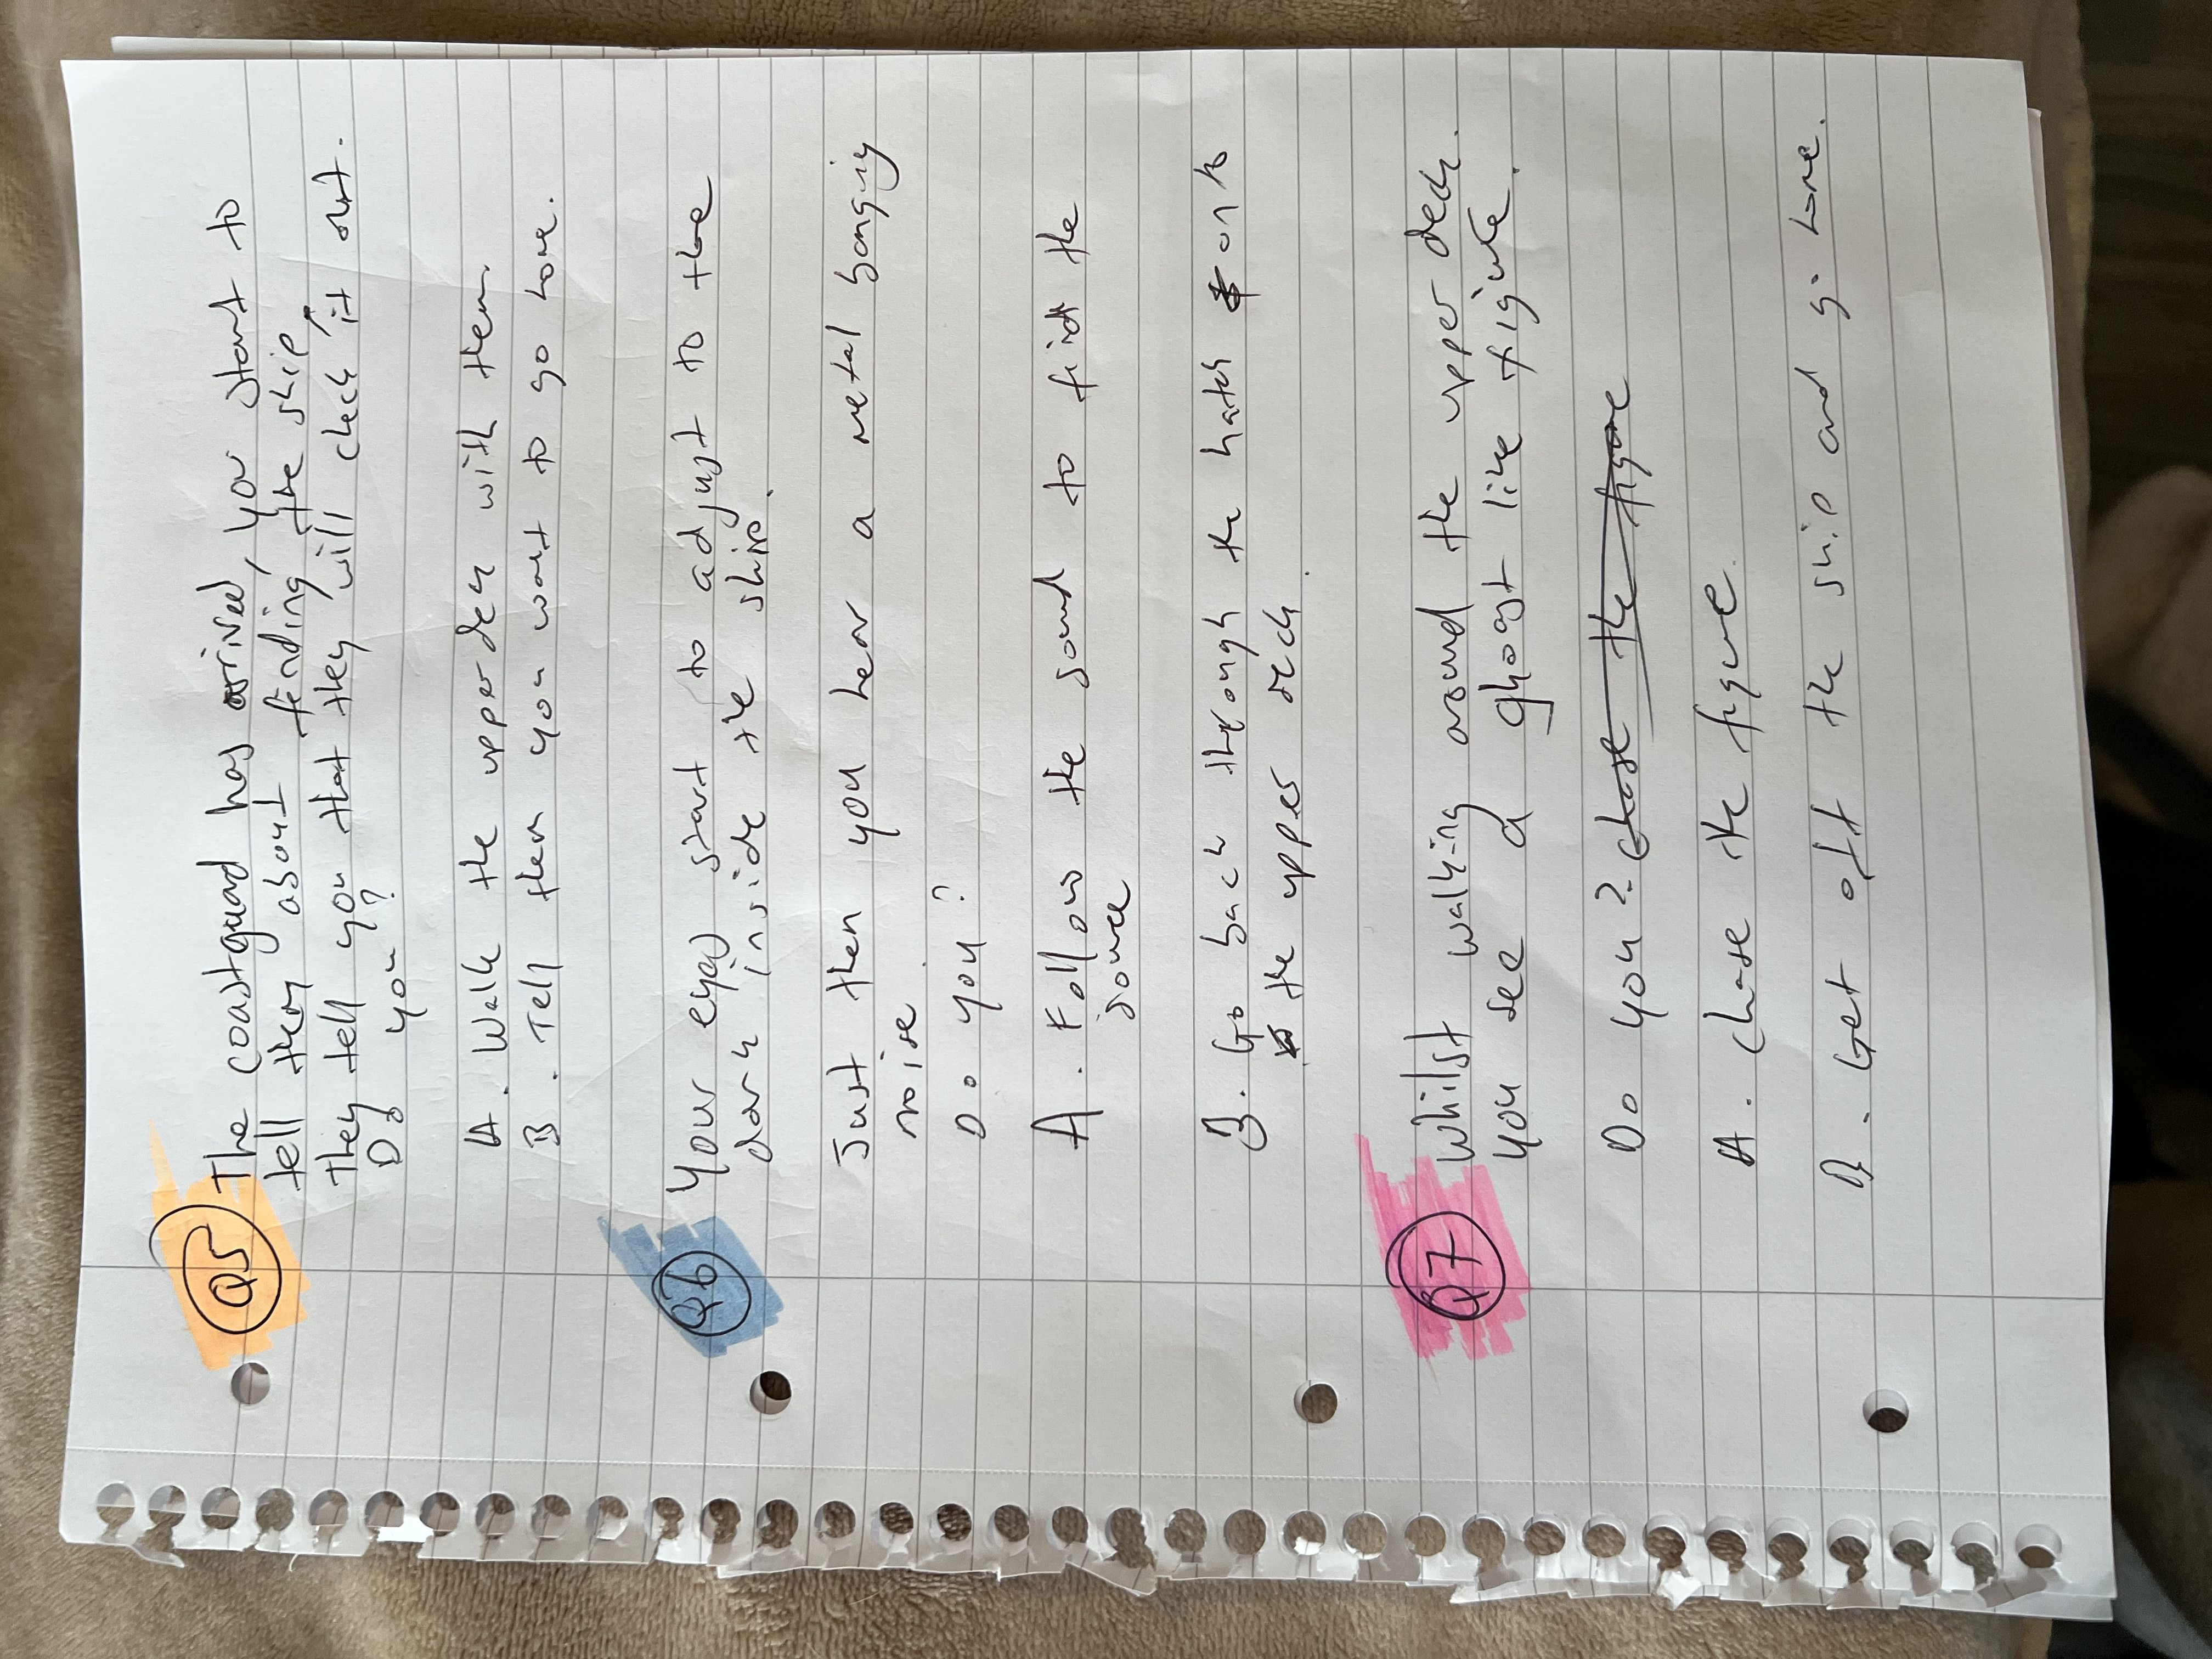 Q5 The coastguard has arrived, you start to
tell them about finding the ship.
They tell you that they will check it out.
Do you?
A. Walk the upper deck with them.
B. Tell them you want to go home.
Q6 Your eyes start to adjust to the
dark inside the ship.
Just then you hear a metal banging
noise.
Do you?
A. Follow the sound to find the
source
B. Go back through the hatch onto
the upper deck.
Q7 Whilst walking around the upper deck.
you see a ghost like figure.
Do you? chase the figure
A. chase the figure.
B. Get off the ship and go home.